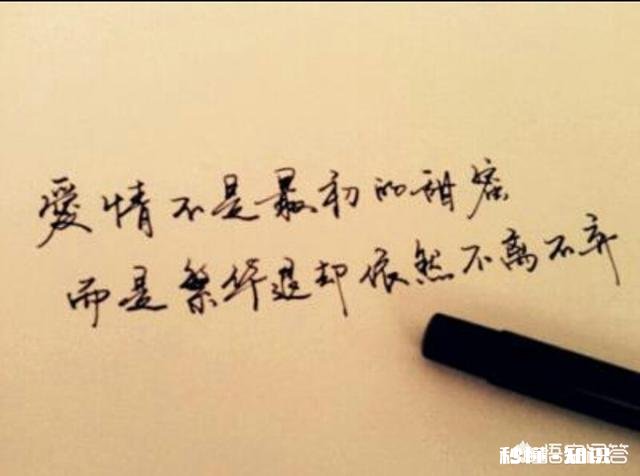 愛情不是最初的甜蜜
而是繁华退却依然不离不弃
悟空问答
知识